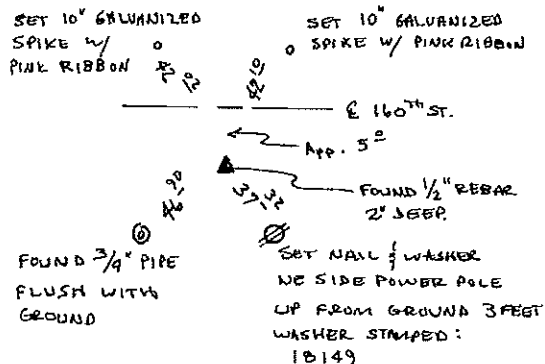 SET 10" GALVANIZED
SPIKE W/
PINK RIBBON
SET 10" GALVANIZED
SPIKE W/ PINK RIBBON
42.02
42.10
℄ 160TH ST.
App. 5.0
46.90
37.32
FOUND 1/2" REBAR
2" DEEP.
FOUND 3/4" PIPE
FLUSH WITH
GROUND
SET NAIL & WASHER
NE SIDE POWER POLE
UP FROM GROUND 3 FEET
WASHER STAMPED:
18149